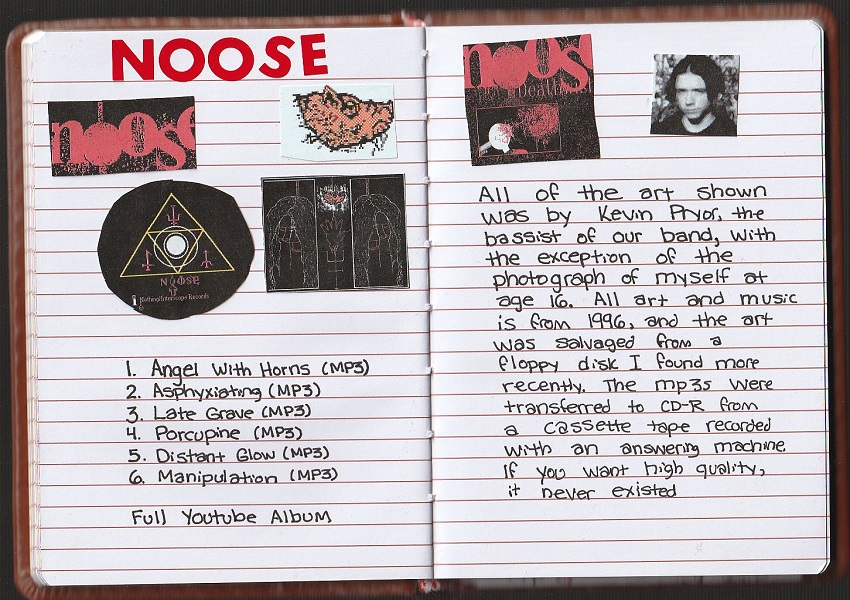 NOOSE
noose
NOOSE
Nothing/Interscope Records
1. Angel With Horns (MP3)
2. Asphyxiating (MP3)
3. Late Grave (MP3)
4. Porcupine (MP3)
5. Distant Glow (MP3)
6. Manipulation (MP3)
Full Youtube Album
noose
All of the art shown
was by Kevin Pryor, the
bassist of our band, with
the exception of the
photograph of myself at
age 16. All art and music
is from 1996, and the art
was salvaged from a
floppy disk I found more
recently. The mp3s were
transferred to CD-R from
a cassette tape recorded
with an answering machine.
If you want high quality,
it never existed